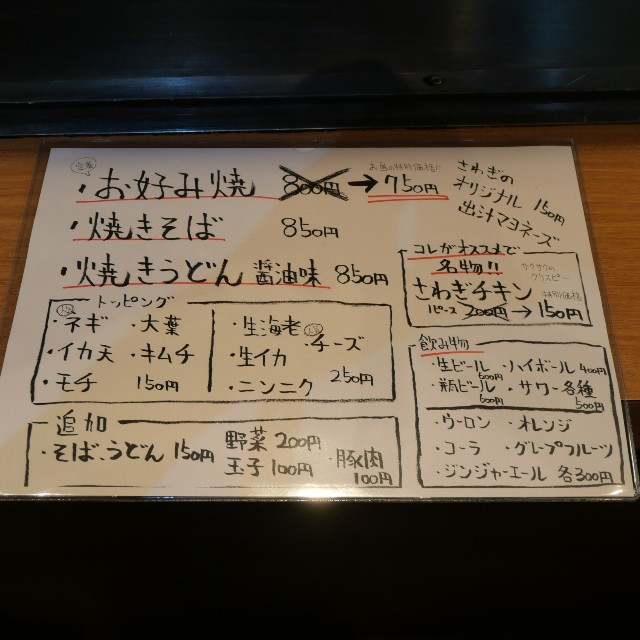 ・お好み焼 800円→750円
お昼の特別価格!!
・焼きそば 850円
・焼きうどん 醤油味 850円
さわぎの
オリジナル 150円
出汁マヨネーズ
コレがオススメで
名物!!
サクサクの
クリスピー
さわぎチキン
特別価格
1ピース 200円→150円
トッピング
・ネギ ・大葉
・イカ天 ・キムチ
・モチ 150円
・生海老 ・チーズ
・生イカ
・ニンニク 250円
追加
・そば・うどん 150円
野菜 200円
玉子 100円
・豚肉
100円
飲み物
・生ビール 500円 ・ハイボール 400円
・瓶ビール 600円 ・サワー各種 500円
・ウーロン ・オレンジ
・コーラ ・グレープフルーツ
・ジンジャーエール 各300円